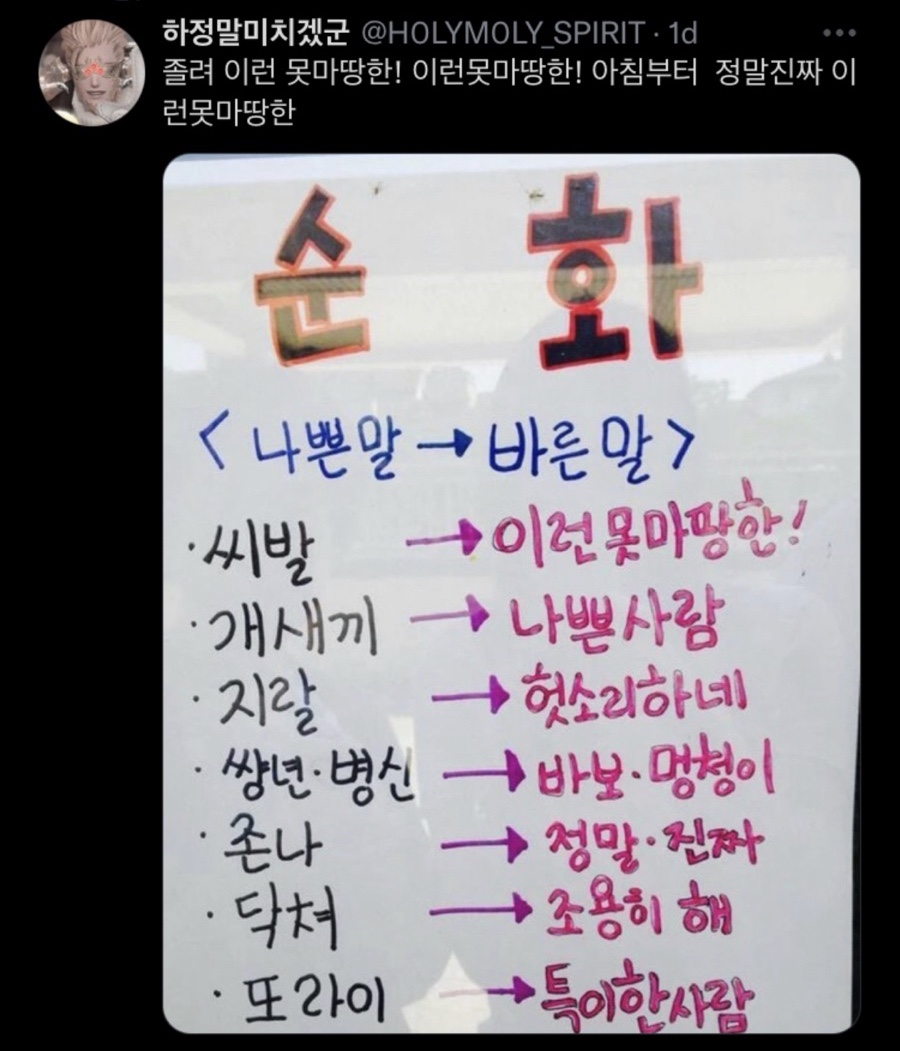 하정말미치겠군 @H0LYM0LY_SPIRIT · 1d
졸려 이런 못마땅한! 이런못마땅한! 아침부터 정말진짜 이
런못마땅한
순화
<나쁜말→바른말>
·씨발 → 이런못마땅한!
·개새끼 → 나쁜사람
·지랄 → 헛소리하네
·쌍년·병신 → 바보·멍청이
·존나 → 정말·진짜
·닥쳐 → 조용히 해
·또라이 → 특이한사람